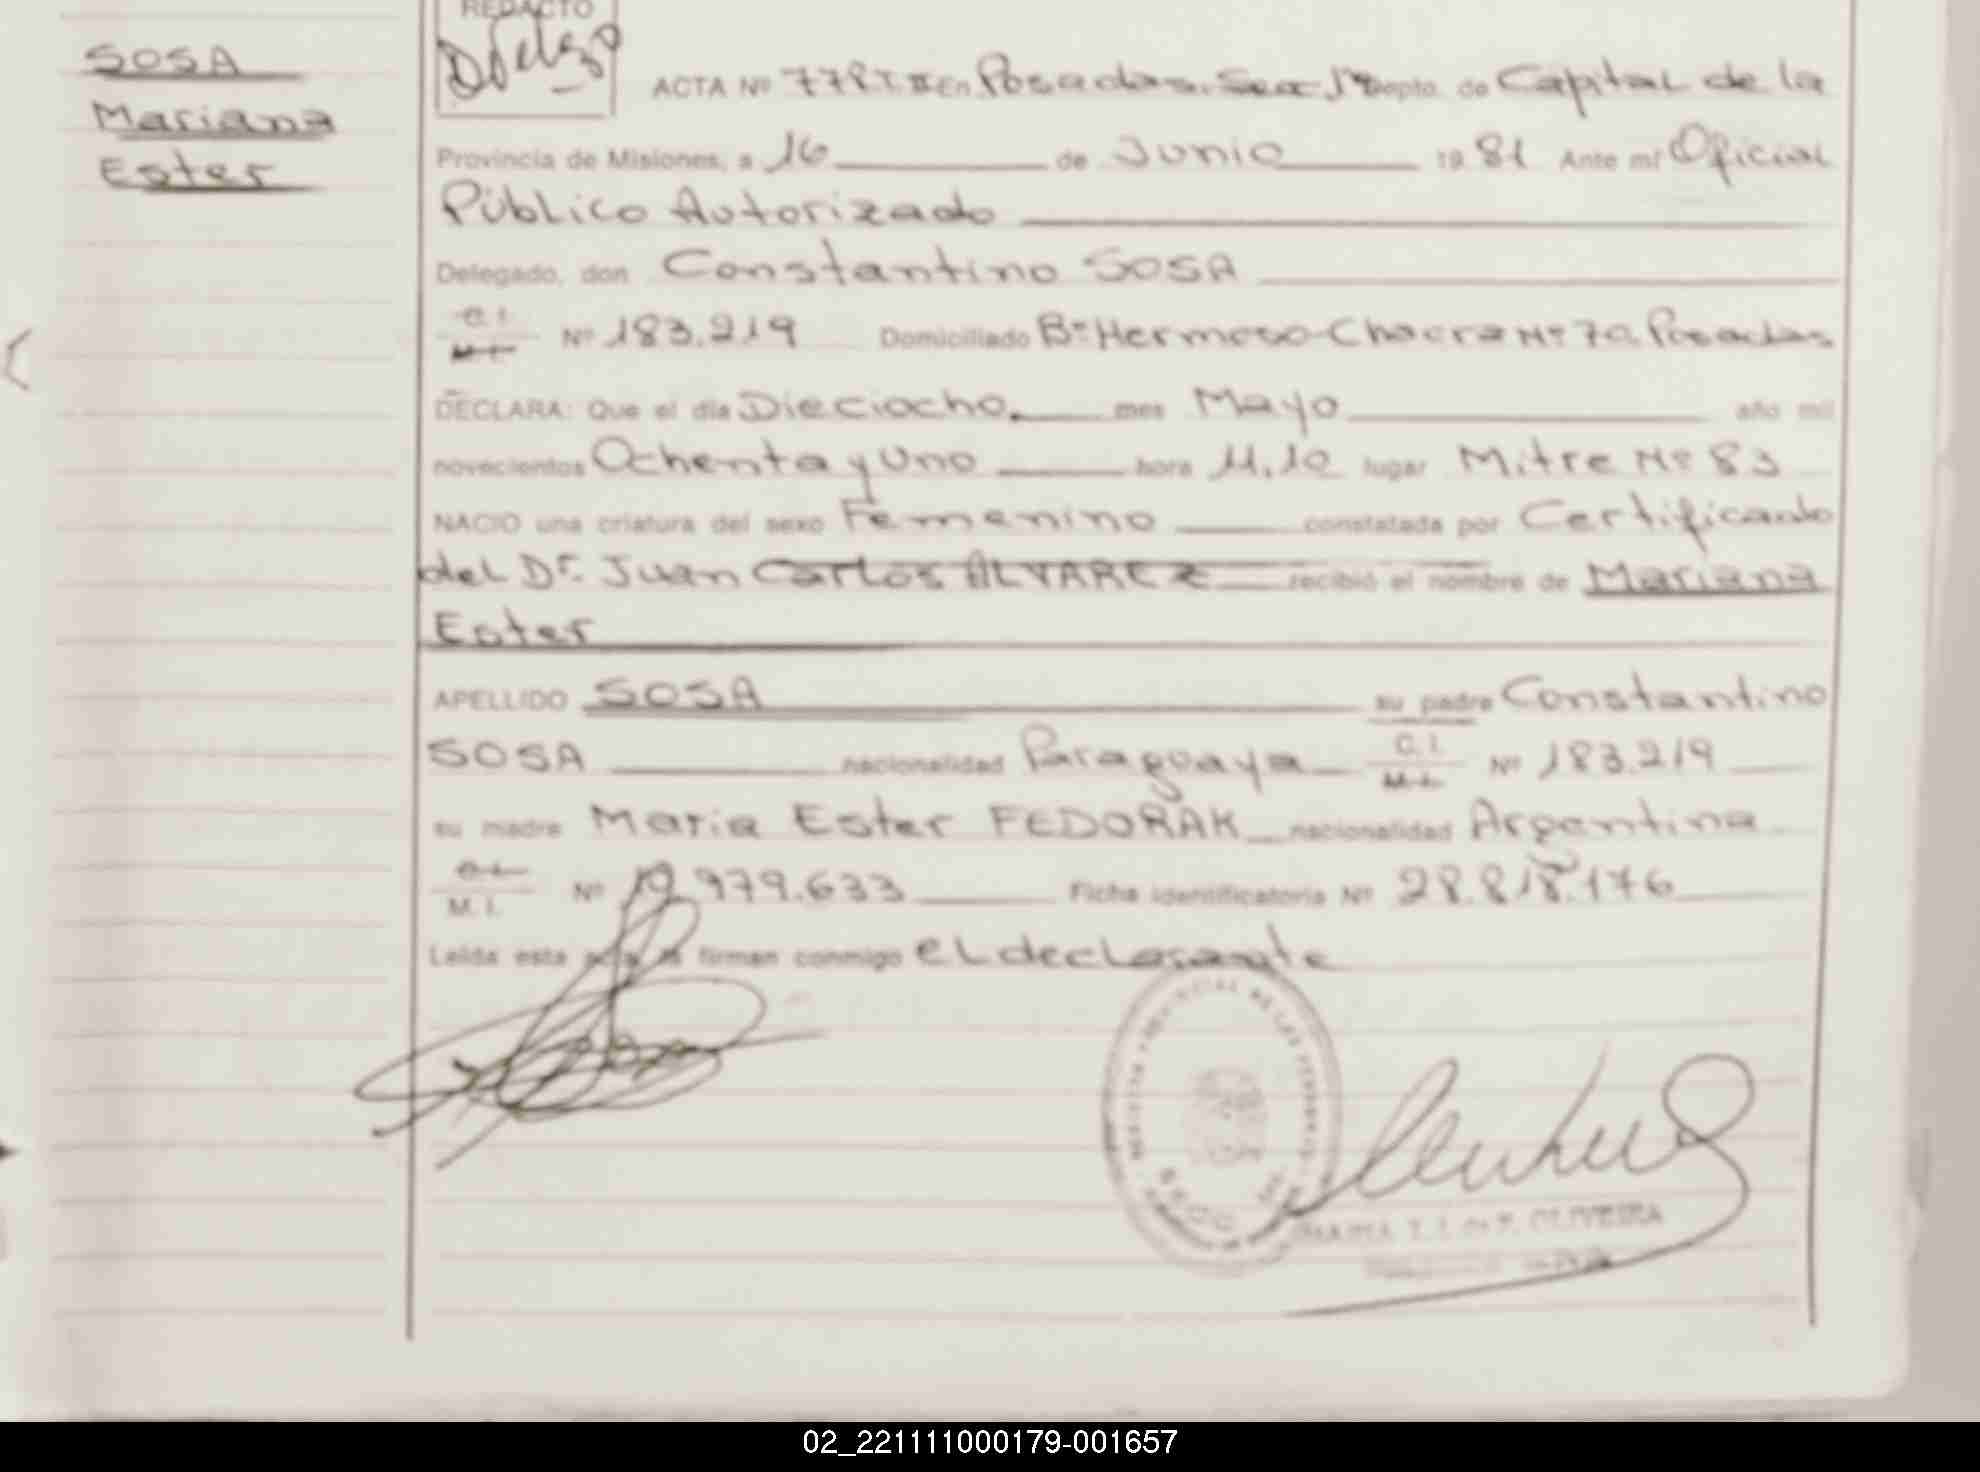 REDACTO
SOSA
Mariana
Ester
ACTA Nº 778 T. II En Posadas. Sec 1ª Depto. de Capital de la
Provincia de Misiones, a 16 de Junio 19 81 Ante mí Oficial
Público Autorizado
Delegado, don Constantino SOSA
C. I.
M. I.
Nº 183.219 Domiciliado Bº Hermoso-Chacra Nº 70. Posadas
DECLARA: Que el día Dieciocho. mes Mayo año mil
novecientos Ochenta y Uno hora 11,10 lugar Mitre Nº 83
NACIO una criatura del sexo Femenino constatada por Certificado
del Dr. Juan Carlos ALVAREZ recibió el nombre de Mariana
Ester
APELLIDO SOSA su padre Constantino
SOSA nacionalidad Paraguaya C. I. M. I. Nº 183.219
su madre Maria Ester FEDORAK nacionalidad Argentina
C. I.
M. I.
Nº 12.979.633 Ficha identificatoria Nº 28.818.176
Leída esta acta la firman conmigo el declarante
OLIVEIRA
02_221111000179-001657